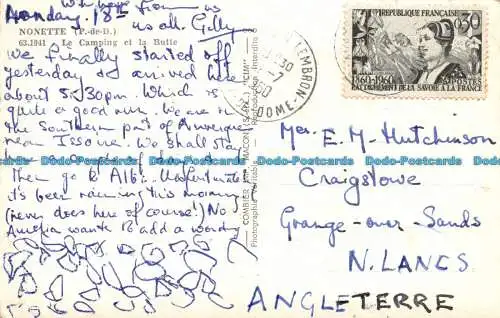 With love from us
us all. Gilly
Monday. 18th
NONETTE (P.-de-D.)
63.1041 Le Camping et la Butte
We finally started off
yesterday & arrived here
about 5.30pm. Which is
quite a good run. We are in
the Southern part of Auvergne
near Issoire. We shall stay
then go to Albi. Unfortunately
it's been raining this morning
(never does here of course!) No
wants to add a word
COMBIER IMP. MACON (S.-&-L.) "CIM"
Photographie véritable - Reproduction Interdite
LEMBRON
DOME
REPUBLIQUE FRANÇAISE
0,30
1860-1960
POSTES
RATTACHEMENT DE LA SAVOIE A LA FRANCE
Mrs. E. M. Hutchinson
Craigslowe
Grange-over Sands
N. LANCS
ANGLETERRE
Dodo-Postcards Dodo-Postcards Dodo-Postcards Dodo-Postcards Dodo-Postcards